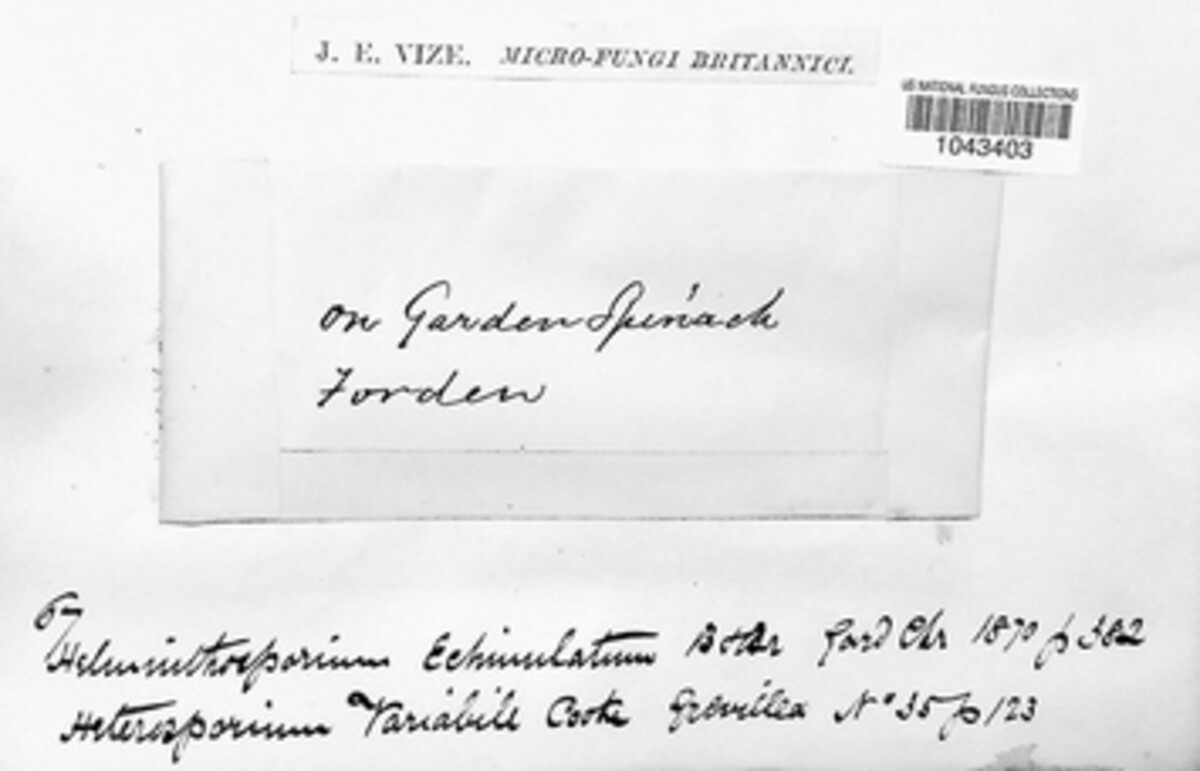 J. E. VIZE. MICRO-FUNGI BRITANNICI.
US NATIONAL FUNGUS COLLECTIONS
1043403
on Garden Spinach
Forden
Helminthosporium Echinulatum Gard Chr 1870 p 382
Heterosporium Variabile Cooke Grevillea No 35 p 123